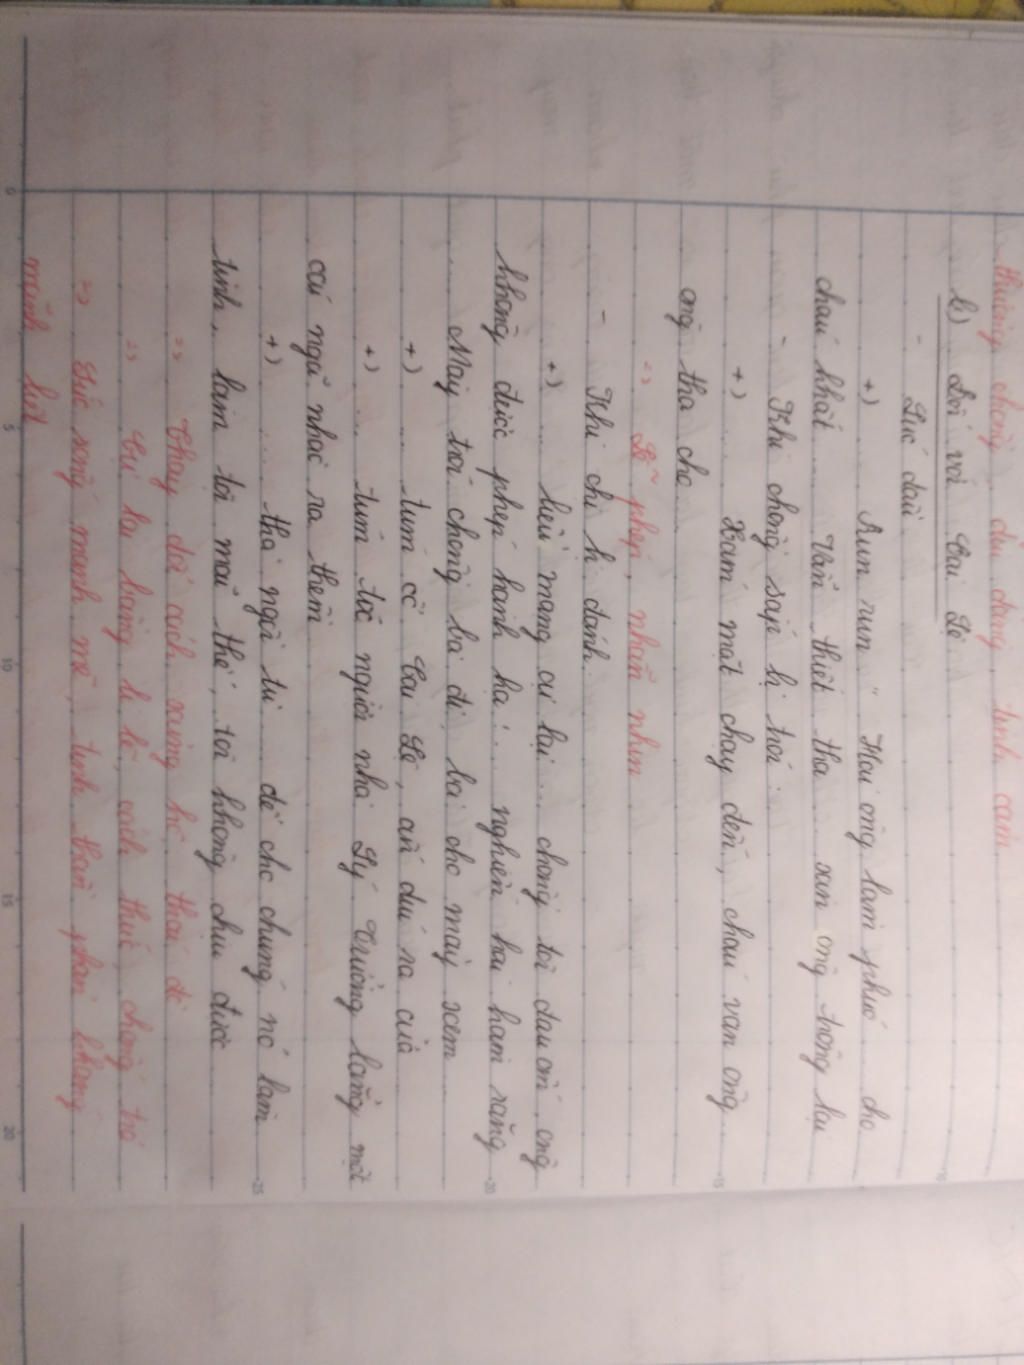 thương chồng, dịu dàng, tình cảm
b) Đối với Cai Lệ
- Lúc đầu
+) ... Run run " Hai ông làm phúc ... cho
cháu khất ... Vẫn thiết tha ... xin ông trông lại
- Khi chồng sắp bị trói:
+) ... Xám mặt chạy đến, cháu van ông
ông tha cho
=> Lễ phép, nhẫn nhịn
- Khi chị bị đánh:
+) ... liều mạng cự lại ... chồng tôi đau ốm, ông
không được phép hành hạ! ... nghiến hai hàm răng
... Mày trói chồng bà đi, bà cho mày xem ...
+) ... túm cổ Cai Lệ, ấn dúi ra cửa
+) ... túm tóc người nhà Lý Trưởng lẳng một
cái ngã nhào ra thềm
+) ... thà ngồi tù ... để cho chúng nó làm
tình, làm tội mãi thế, tôi không chịu được
=> Thay đổi cách xưng hô, thái độ
=> Cự lại bằng lí lẽ, cách thức chống trả
=> Sức sống mạnh mẽ, tinh thần phản kháng
mãnh liệt